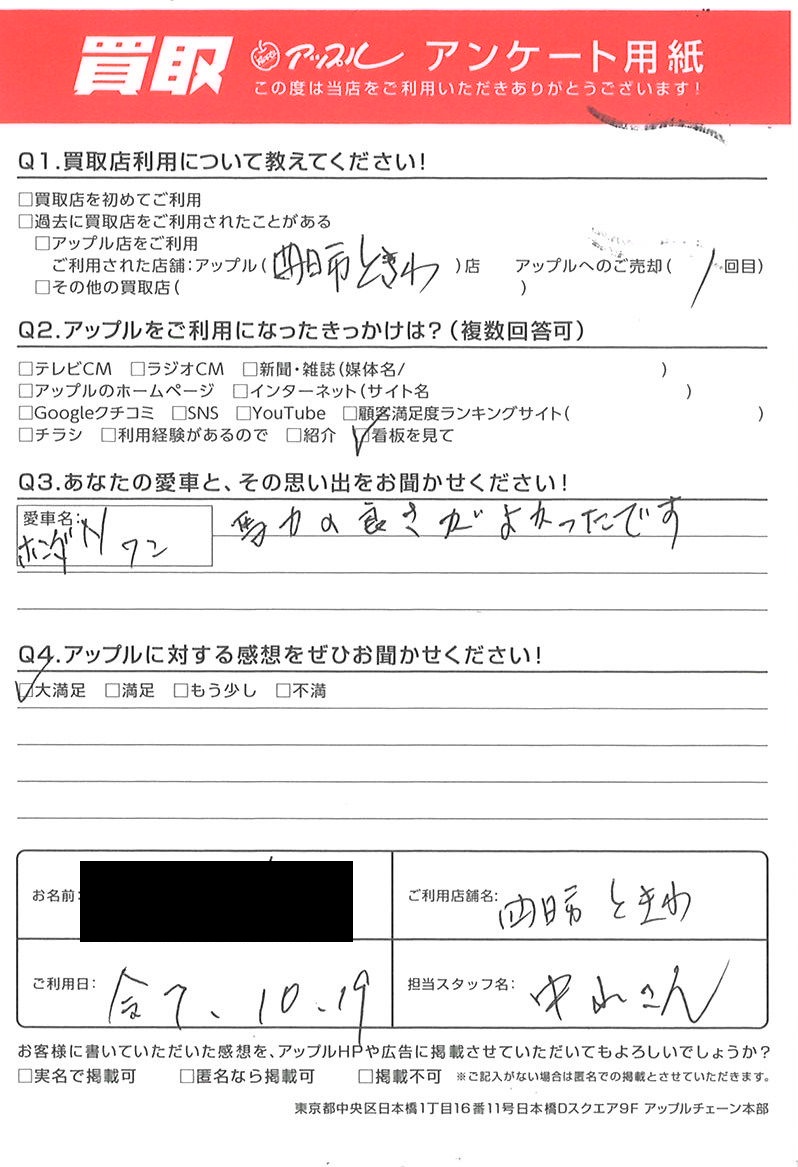 買取 アップル アンケート用紙
この度は当店をご利用いただきありがとうございます！
Q1.買取店利用について教えてください！
□買取店を初めてご利用
□過去に買取店をご利用されたことがある
□アップル店をご利用
ご利用された店舗：アップル（四日市ときわ）店 アップルへのご売却（1回目）
□その他の買取店（ ）
Q2.アップルをご利用になったきっかけは？（複数回答可）
□テレビCM □ラジオCM □新聞・雑誌（媒体名/ ）
□アップルのホームページ □インターネット（サイト名 ）
□Googleクチコミ □SNS □YouTube □顧客満足度ランキングサイト（ ）
□チラシ □利用経験があるので □紹介 ☑看板を見て
Q3.あなたの愛車と、その思い出をお聞かせください！
愛車名：
ホンダN ワン
馬力の良さがよかったです
Q4.アップルに対する感想をぜひお聞かせください！
☑大満足 □満足 □もう少し □不満
お名前：
ご利用店舗名：四日市 ときわ
ご利用日：令7.10.19
担当スタッフ名：中山さん
お客様に書いていただいた感想を、アップルHPや広告に掲載させていただいてもよろしいでしょうか？
□実名で掲載可 □匿名なら掲載可 □掲載不可 ※ご記入がない場合は匿名での掲載とさせていただきます。
東京都中央区日本橋1丁目16番11号日本橋Dスクエア9F アップルチェーン本部